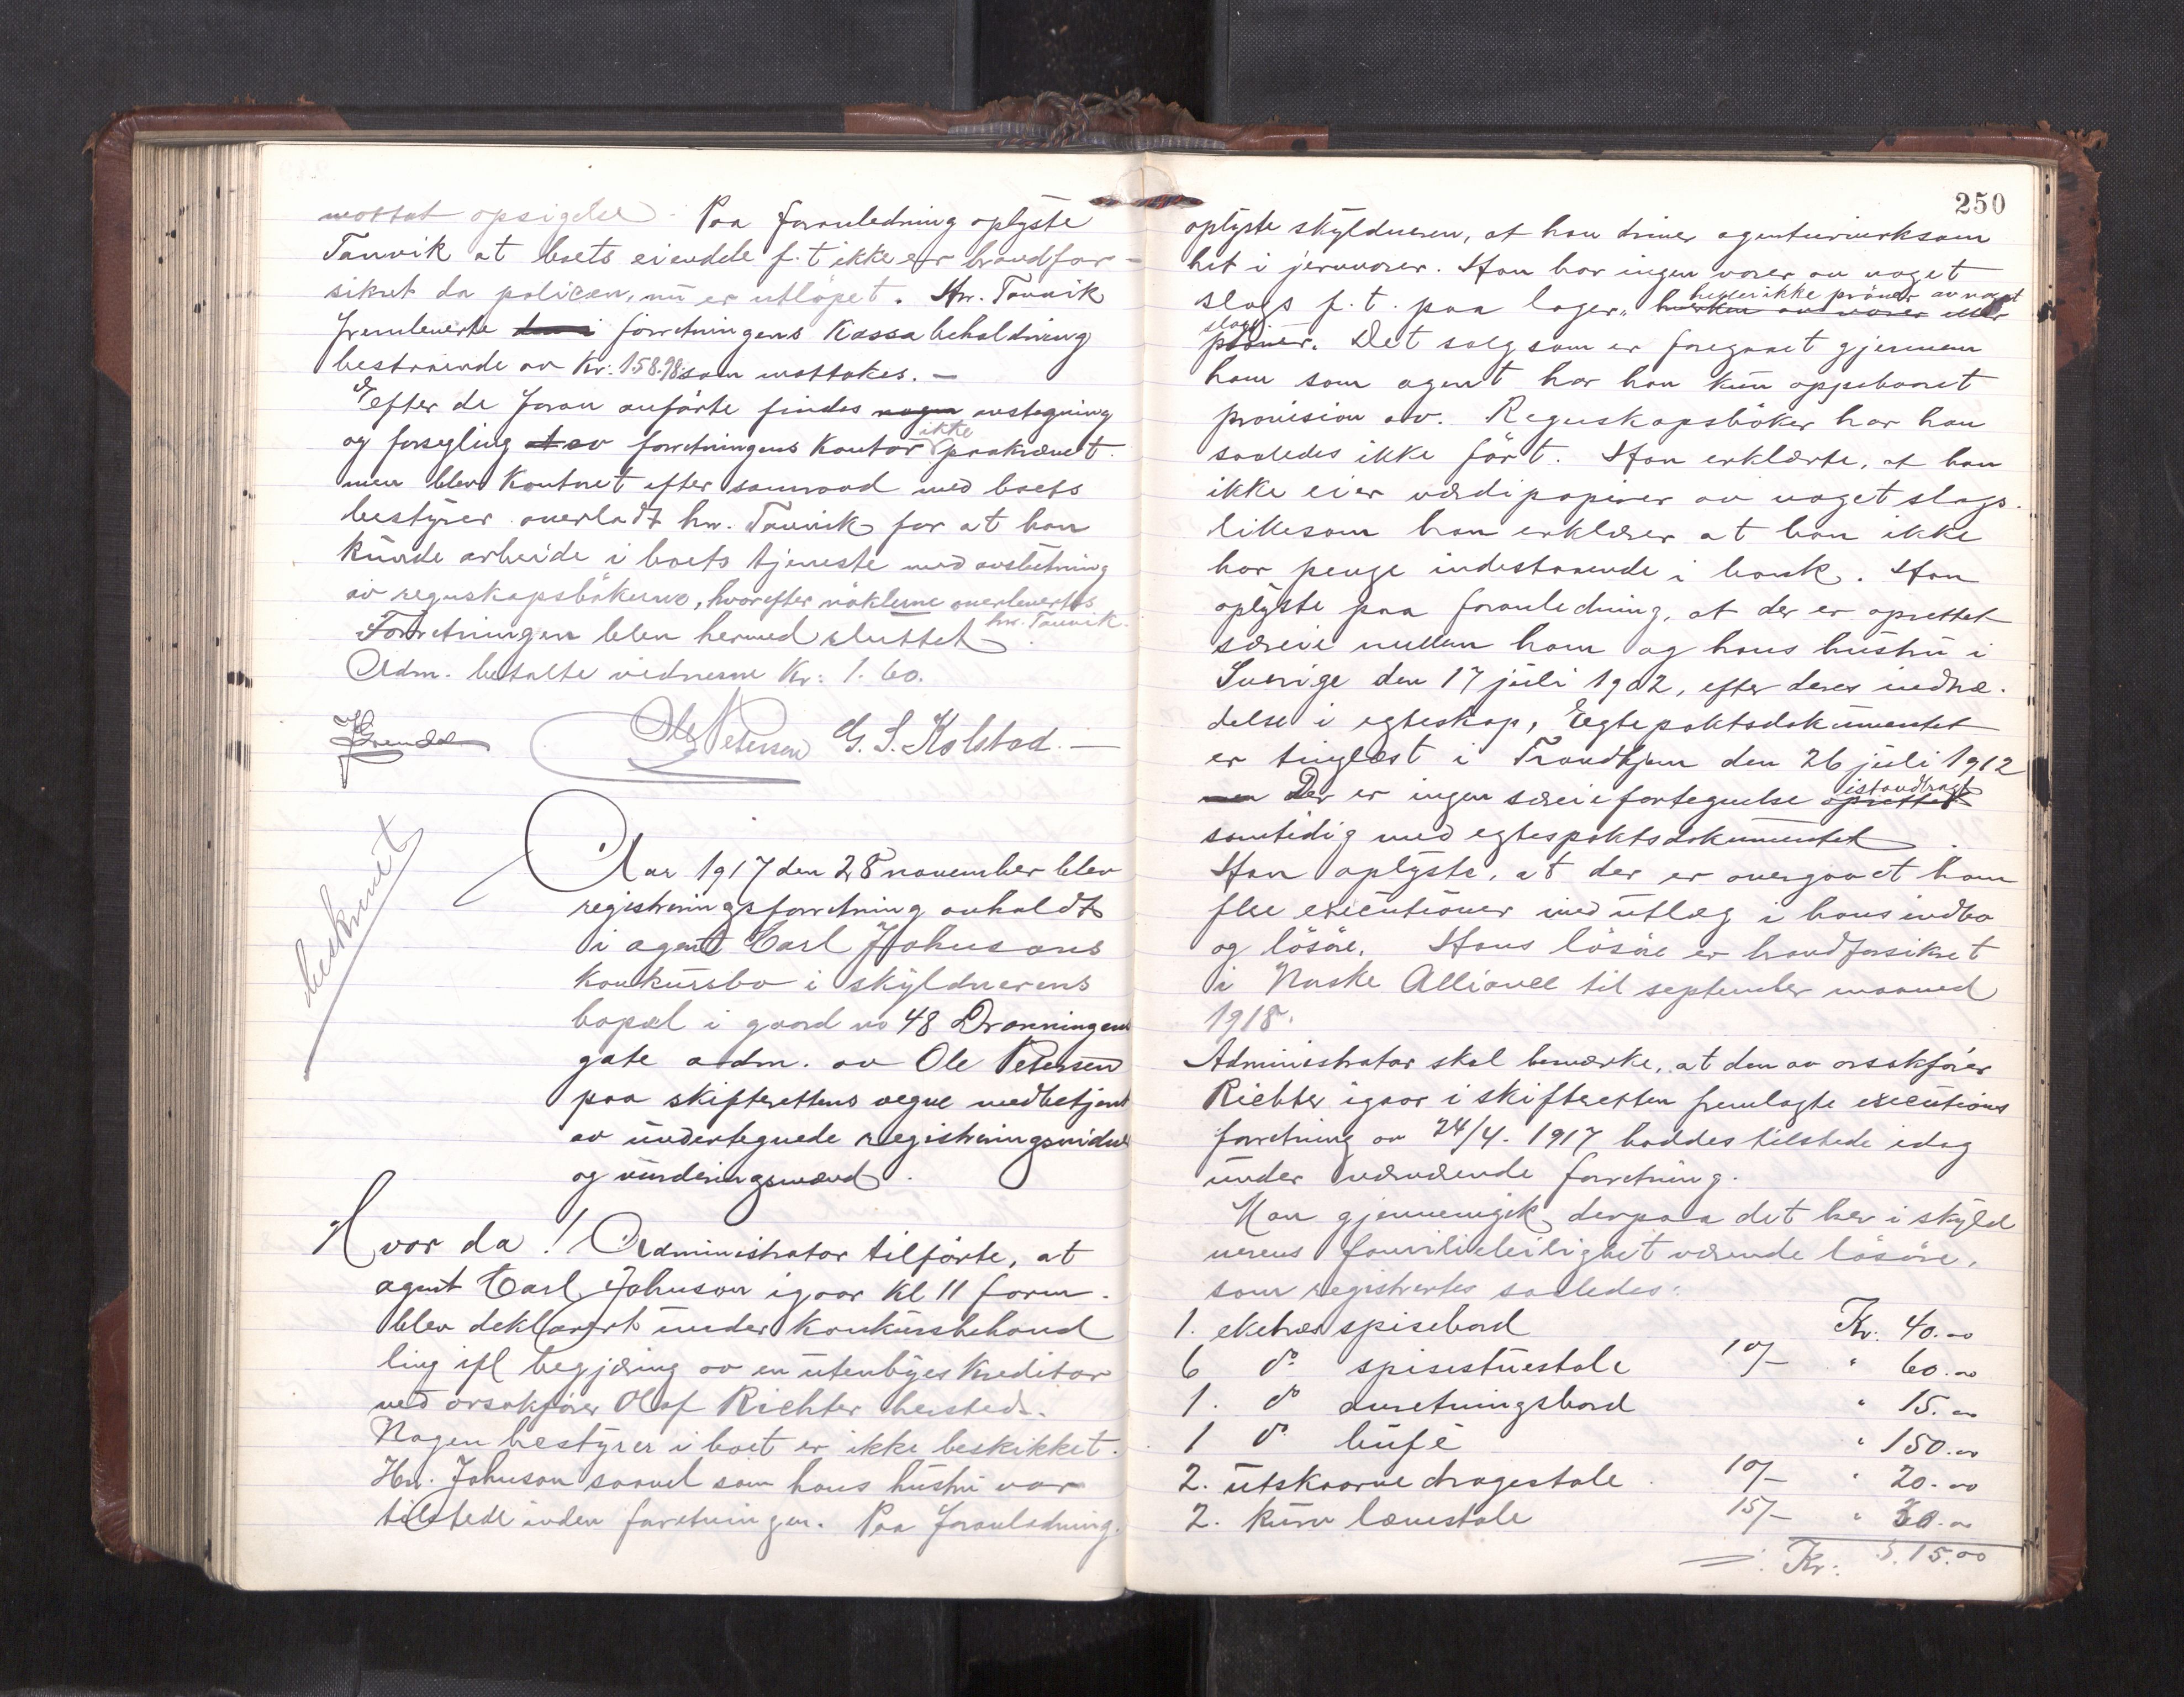 mottat opsigelse. Paa foranledning oplyste
Tanvik at boets eiendele f. t ikke er brandfor-
sikret da policen, nu er utløpet. Hr. Tanvik
fremleverte forretningens Kassabeholdning
bestaaende av Kr: 158.98 som mottokes. —
Efter de foran anførte findes nogen avstegning
og forsegling at av forretningens Kontor ikke paakrævet.
men blev Kontoret efter samraad med boets
bestyrer overladt hr. Tanvik for at han
kunde arbeide i boets tjeneste med avslutning
av regnskapsbøkerne, hvorefter nøklerne overlevertes
hr. Tanvik.
Forretningen blev hermed sluttet.
Adm. betalte vidnerne Kr: 1.60.
Ole Petersen G. S. Kolstad. —
beskrevet
Aar 1917 den 28 november blev
registreringsforretning avholdt
i agent Carl Johnsons
konkursbo i skyldnerens
bopæl i gaard no 48 Dronningens
gate adm. av Ole Petersen
paa skifterettens vegne medbetjent
av undertegnede registreringsvidner
og vurderingsmænd.
Hvor da! Administrator tilførte, at
agent Carl Johnson igaar kl 11 form.
blev deklarert under konkursbehand
ling ifl begjæring av en utenbyes kreditor
ved orsakfører Olaf Richter hersteds.
Nogen bestyrer i boet er ikke beskikket.
Hr. Johnson saavel som hans hustru var
tilstede under forretningen. Paa foranledning.
250
oplyste skyldneren, at han driver agenturvirksom
het i jernvarer. Han har ingen varer av noget
slags f. t. paa lager, hverken av varer eller
heller ikke prøver av noget
slags.
prøver. Det salg som er foregaaet gjennem
ham som agent har han kun oppebaaret
provision av. Regnskapsbøker har han
saaledes ikke ført. Han erklærte, at han
ikke eier værdipapirer av noget slags.
likesom han erklærer at han ikke
har penge indestaaende i bank. Han
oplyste paa foranledning, at der er oprettet
særeie mellem ham og hans hustru i
Sverige den 17 juli 1902, efter deres indtræ-
delse i egteskap, Egtepaktsdokumentet
er tinglæst i Trondhjem den 26 juli 1912
men Der er ingen særeiefortegnelse oprettet istandbragt
samtidig med egtepaktsdokumentet.
Han oplyste, at der er overgaaet ham
flere executioner med utlæg i hans indbo
og løsøre. Hans løsøre er brandforsikret
i Norske Alliance til september maaned
1918.
Administrator skal bemærke, at den av orsakfører
Richter igaar i skifteretten fremlagte executions
forretning av 24/4. 1917 haddes tilstede idag
under nærværende forretning.
Man gjennemgik derpaa det her i skyld
nerens familieleilighet værende løsøre,
som registrertes saaledes:
1. eketræs spisebord Kr: 40.00
6 do spisestuestole 10/- " 60.00
1. do anretningsbord " 15.00
1 do bufé " 150.00
2. utskaarne dragestole 10/- " 20.00
2. kurv lænestole 15/- " 30.00
=: Kr: 315.00